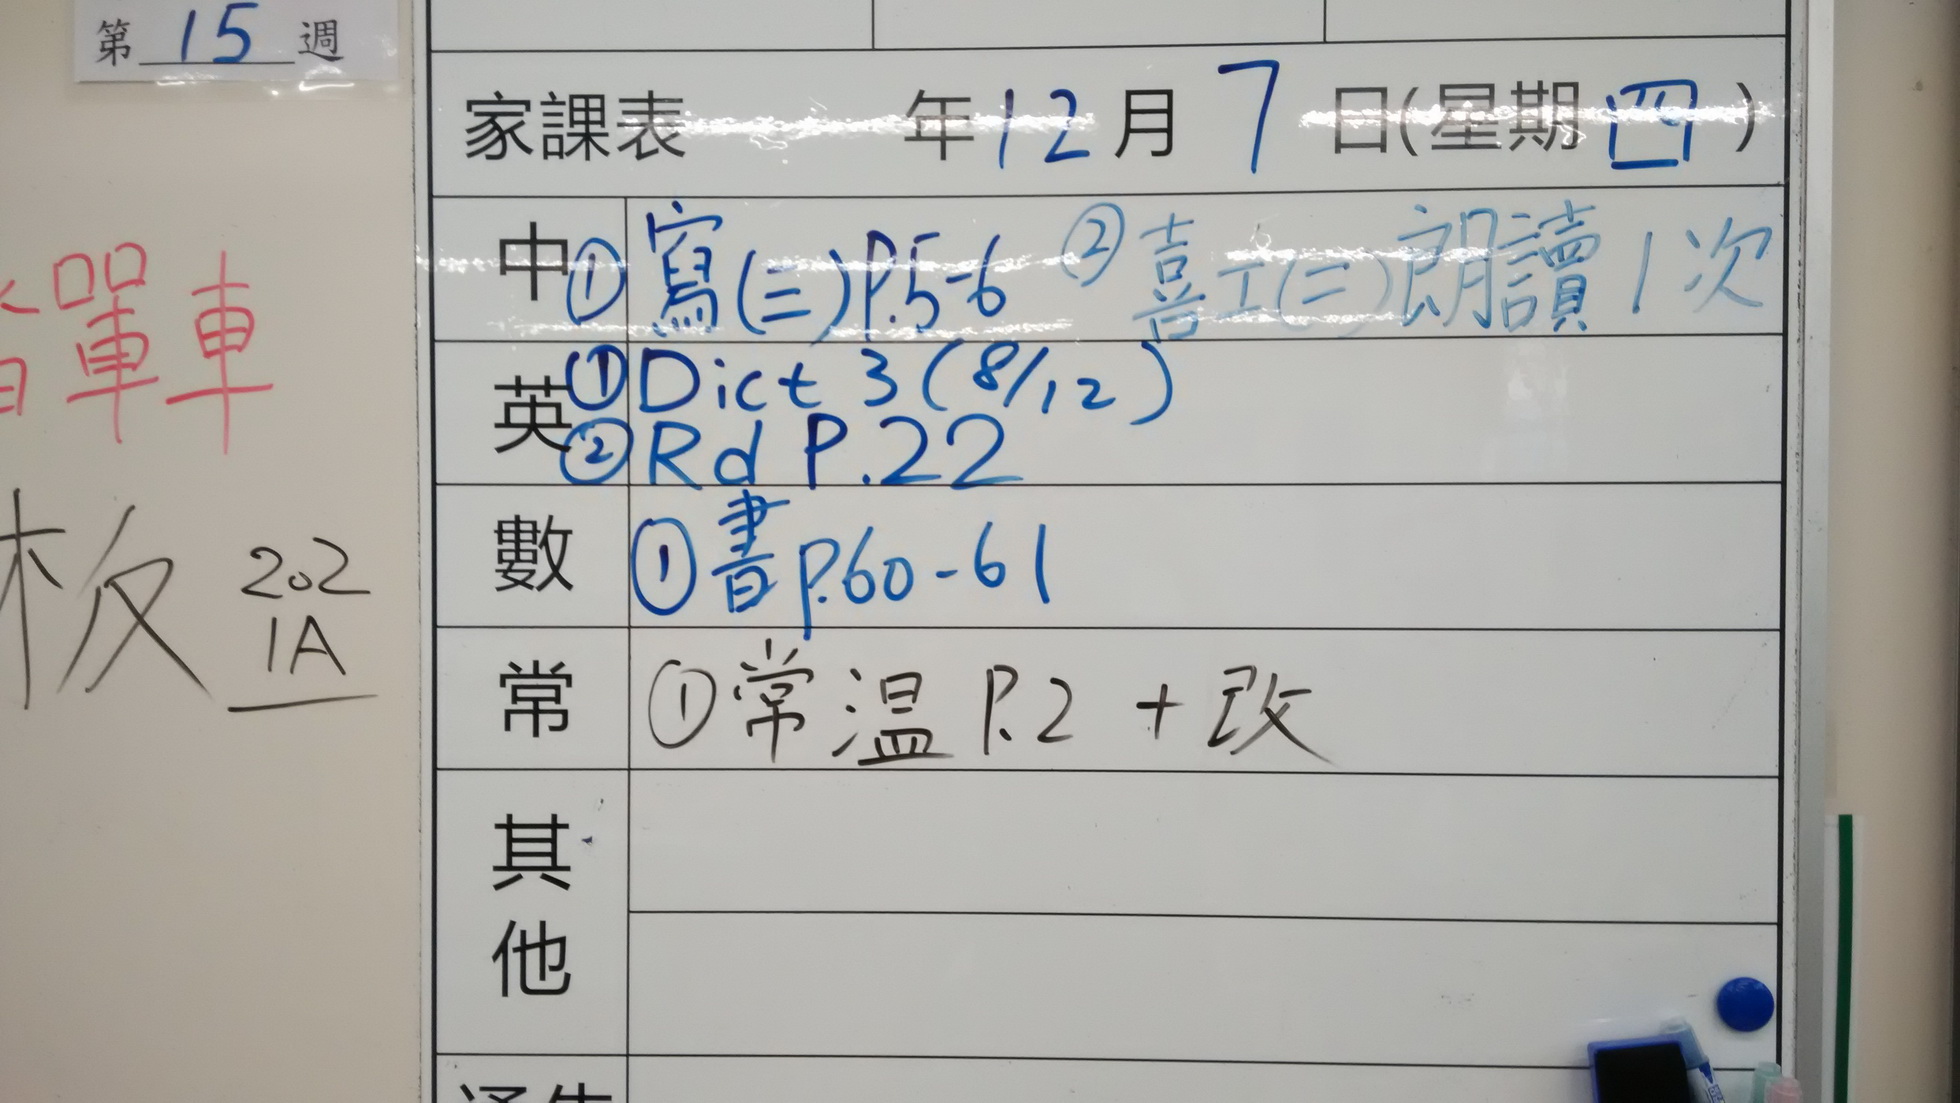 第 15 週
家課表 年 12 月 7 日(星期 四 )
中 ① 寫(三)P.5-6 ② 喜工(二)朗讀 1 次
英 ① Dict 3 (8/12)
② Rd P.22
數 ① 書 P.60-61
常 ① 常温 P.2 + 改
其他
單車
板 202
1A